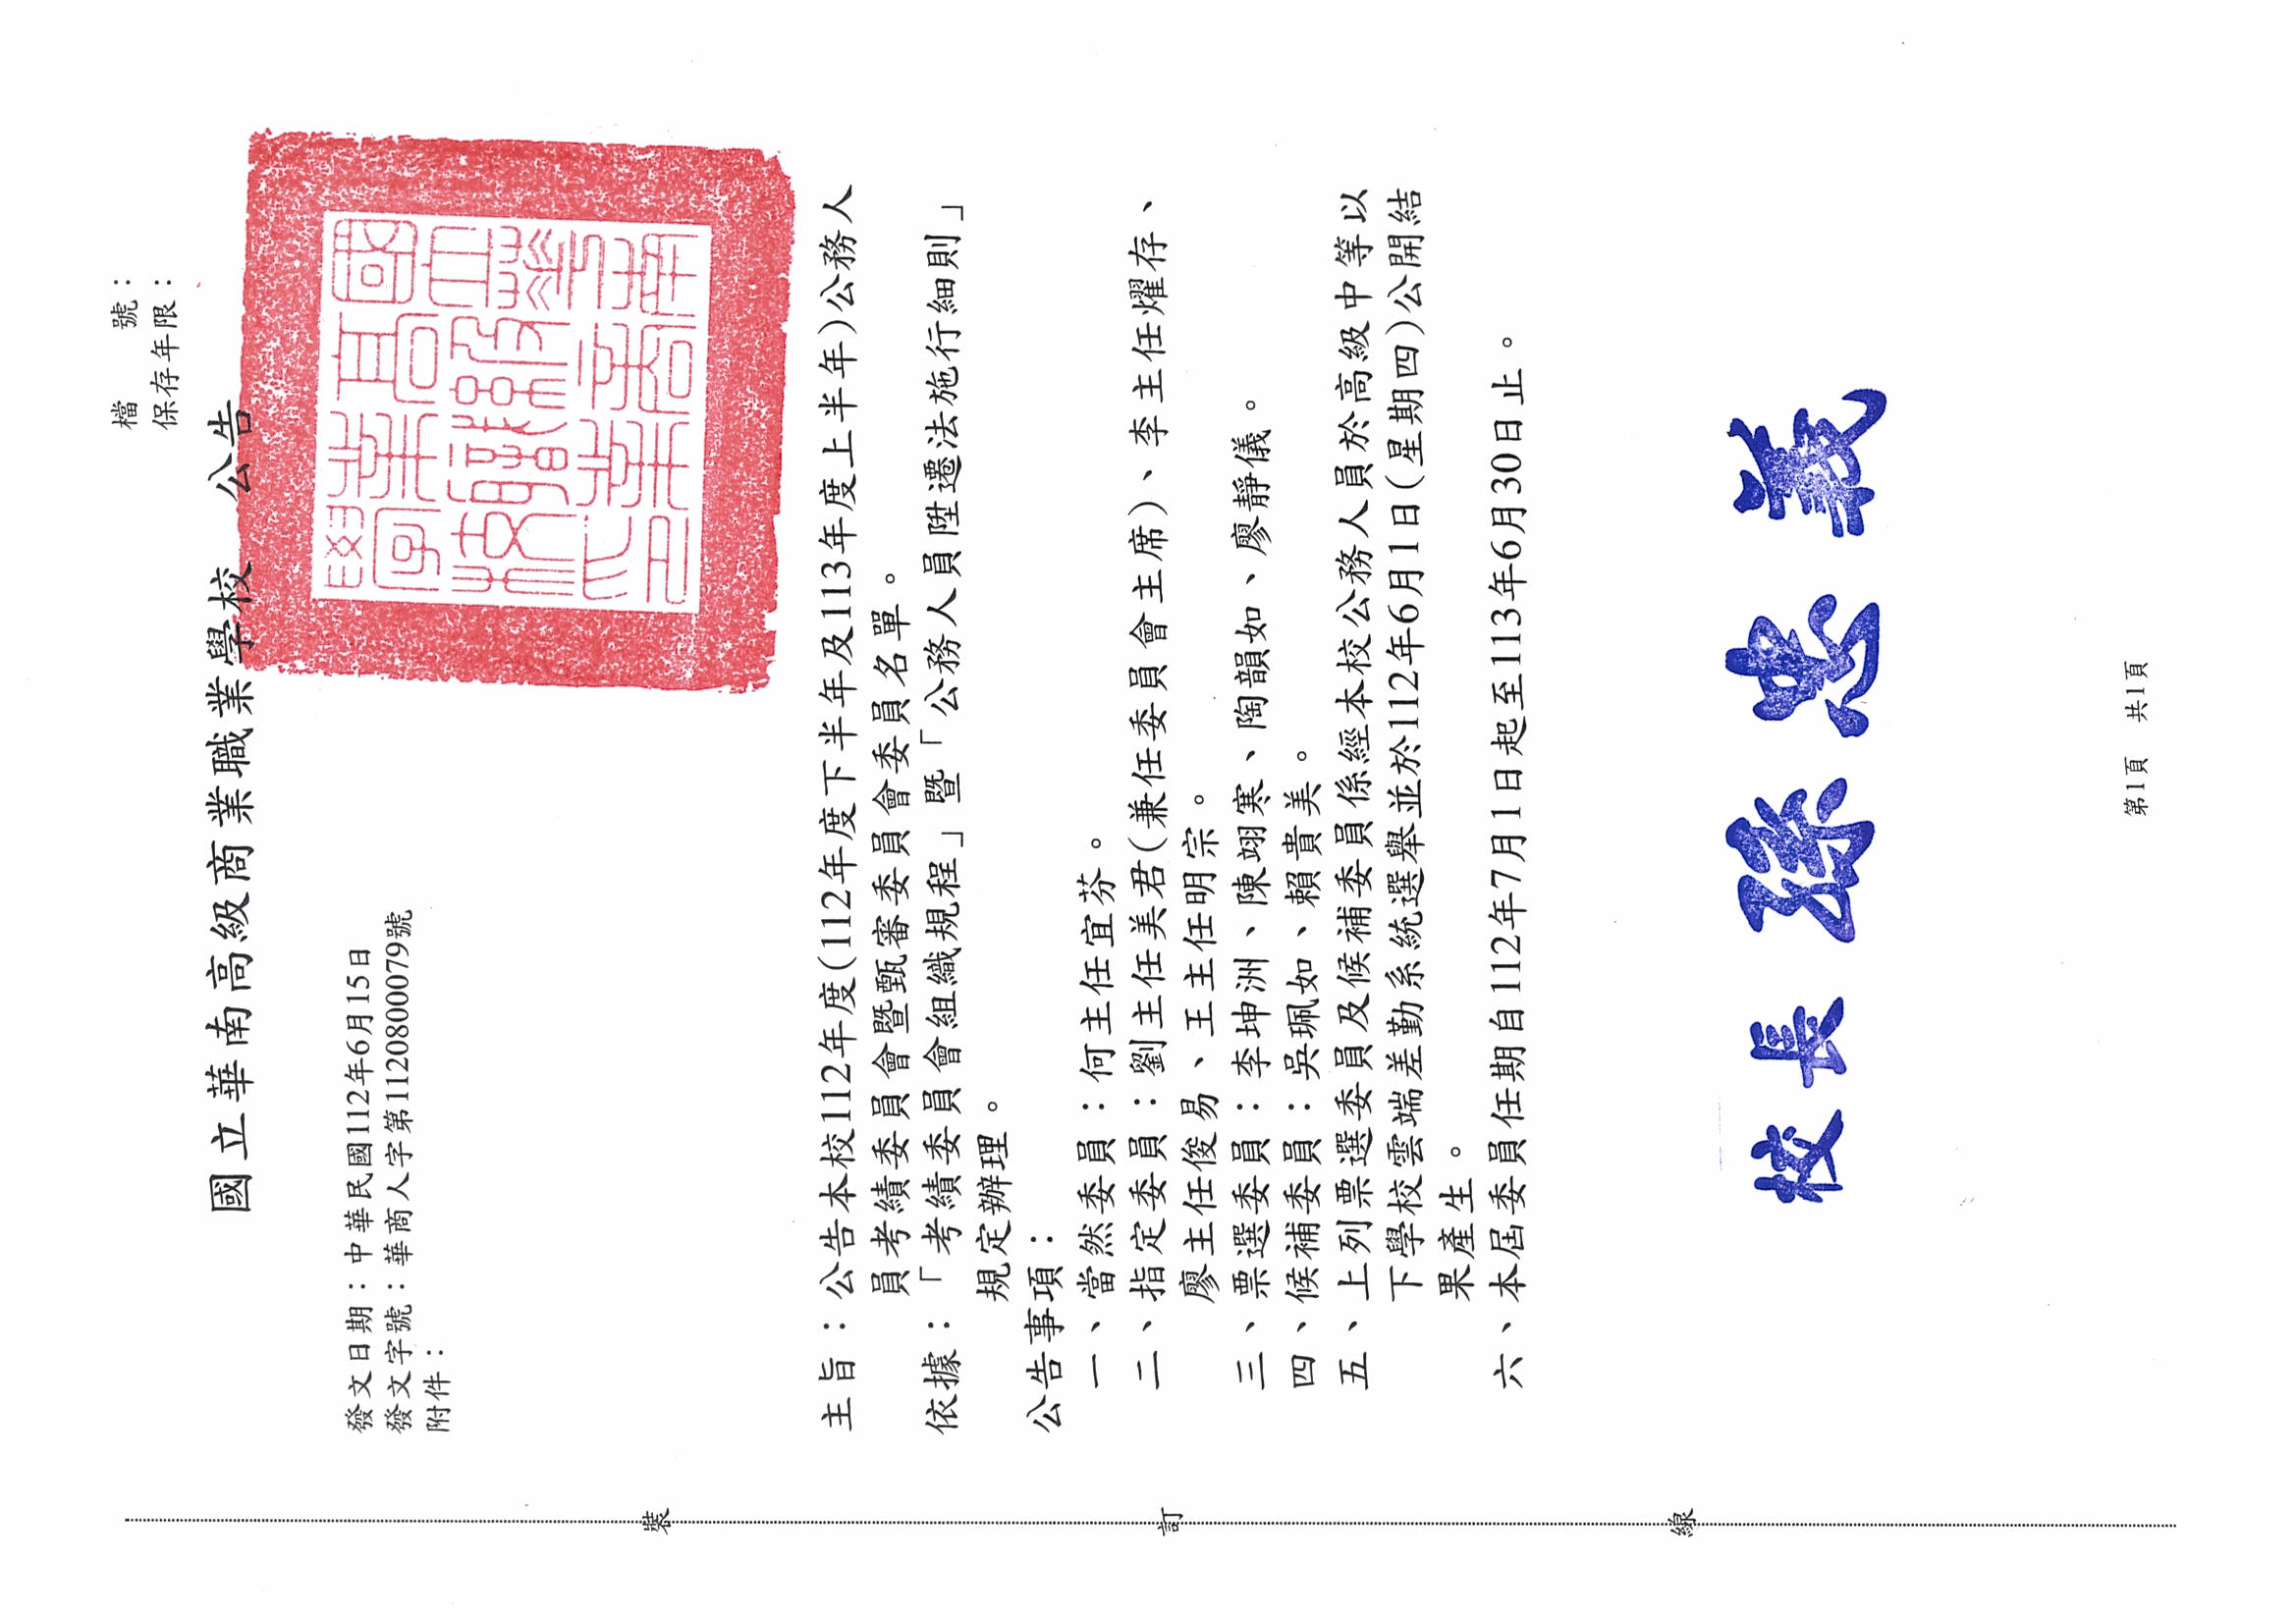 檔　　號：
保存年限：
國立華南高級商業職業學校　公告
發文日期：中華民國112年6月15日
發文字號：華商人字第1120800079號
附件：
主旨：公告本校112年度(112年度下半年及113年度上半年)公務人
員考績委員會暨甄審委員會委員名單。
依據：「考績委員會組織規程」暨「公務人員陞遷法施行細則」
規定辦理。
公告事項：
一、當然委員：何主任宜芬。
二、指定委員：劉主任美君(兼任委員會主席)、李主任燿存、
廖主任俊易、王主任明宗。
三、票選委員：李坤洲、陳翊寒、陶韻如、廖靜儀。
四、候補委員：吳珮如、賴貴美。
五、上列票選委員及候補委員係經本校公務人員於高級中等以
下學校雲端差勤系統選舉並於112年6月1日(星期四)公開結
果產生。
六、本屆委員任期自112年7月1日起至113年6月30日止。
校長 孫忠義
裝
訂
線
第1頁　共1頁